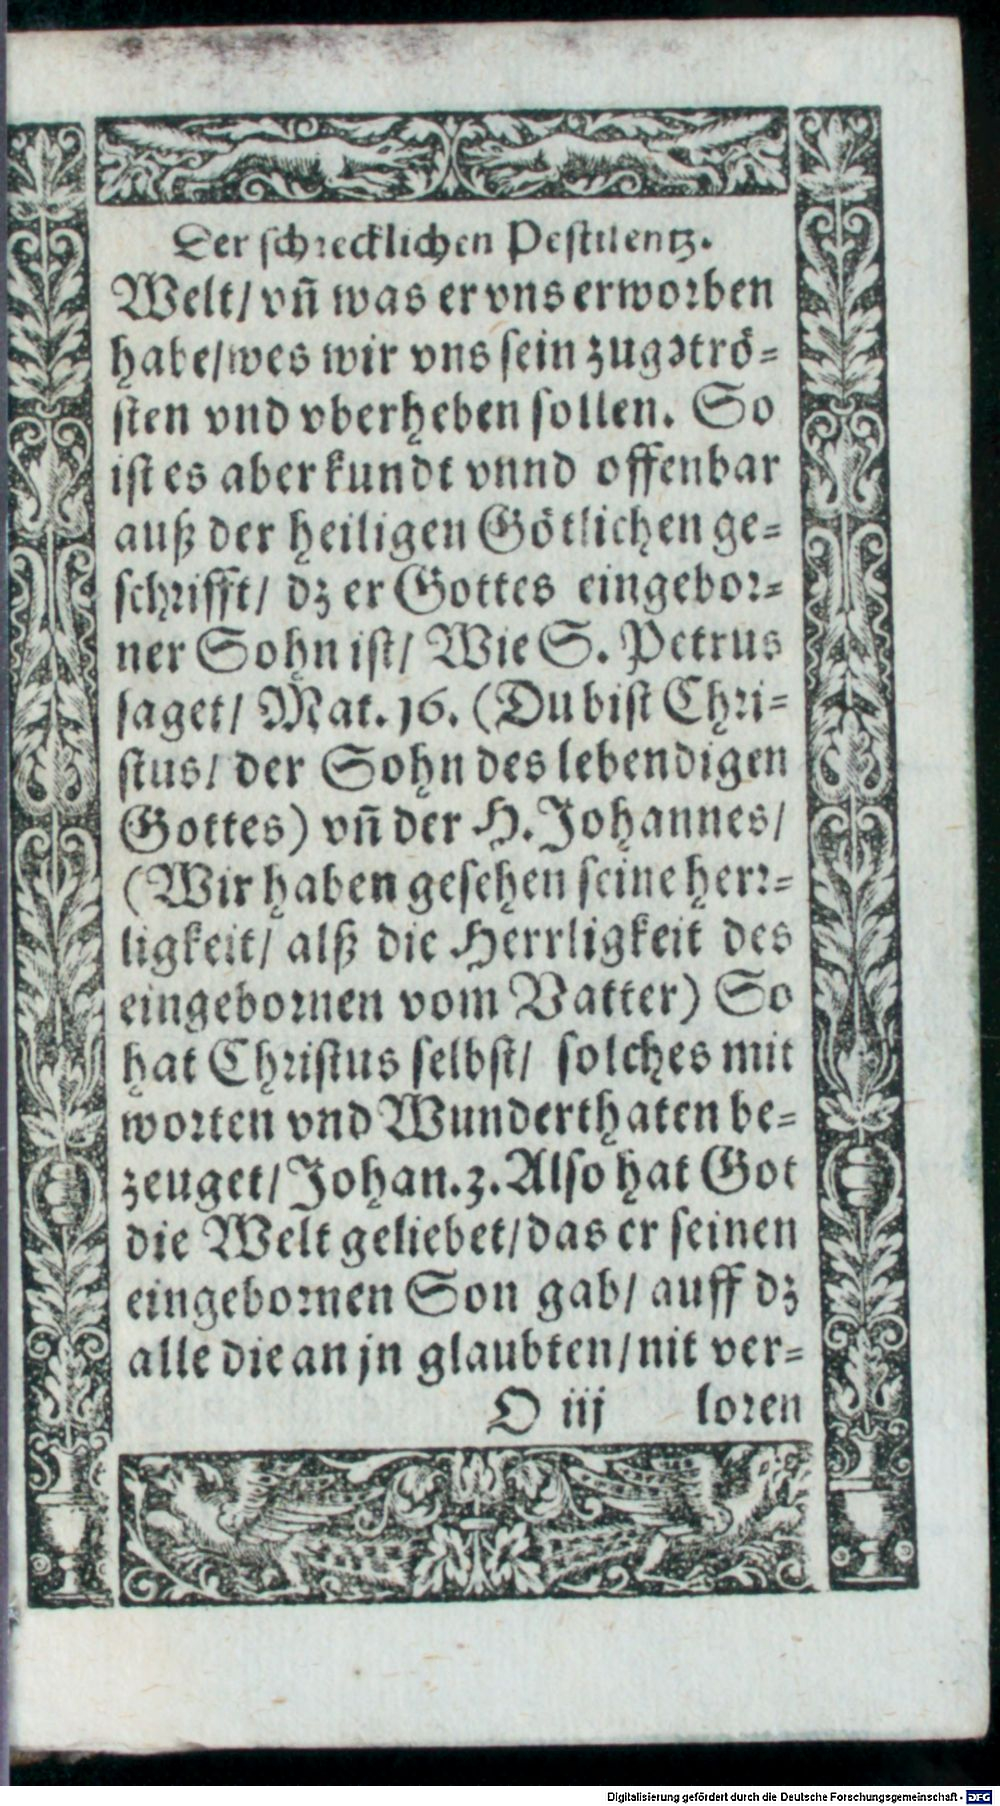 Der schrecklichen Pestilentz.
Welt/ vñ was er vns erworben
habe/wes wir vns sein zugetrö=
sten vnd vberheben sollen. So
ist es aber kundt vnnd offenbar
auß der heiligen Götlichen ge=
schrifft/ dz er Gottes eingebor=
ner Sohn ist/ Wie S. Petrus
saget/ Mat. 16. (Du bist Chri=
stus/ der Sohn des lebendigen
Gottes) vñ der H. Johannes/
(Wir haben gesehen seine herr=
ligkeit/ alß die Herrligkeit des
eingebornen vom Vatter) So
hat Christus selbst/ solches mit
worten vnd Wunderthaten be=
zeuget/ Johan. 3. Also hat Got
die Welt geliebet/ das er seinen
eingebornen Son gab/ auff dz
alle die an jn glaubten/ nit ver=
O iij loren
Digitalisierung gefördert durch die Deutsche Forschungsgemeinschaft - DFG